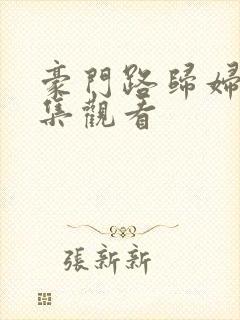 豪門路歸婦
集觀看
張新新